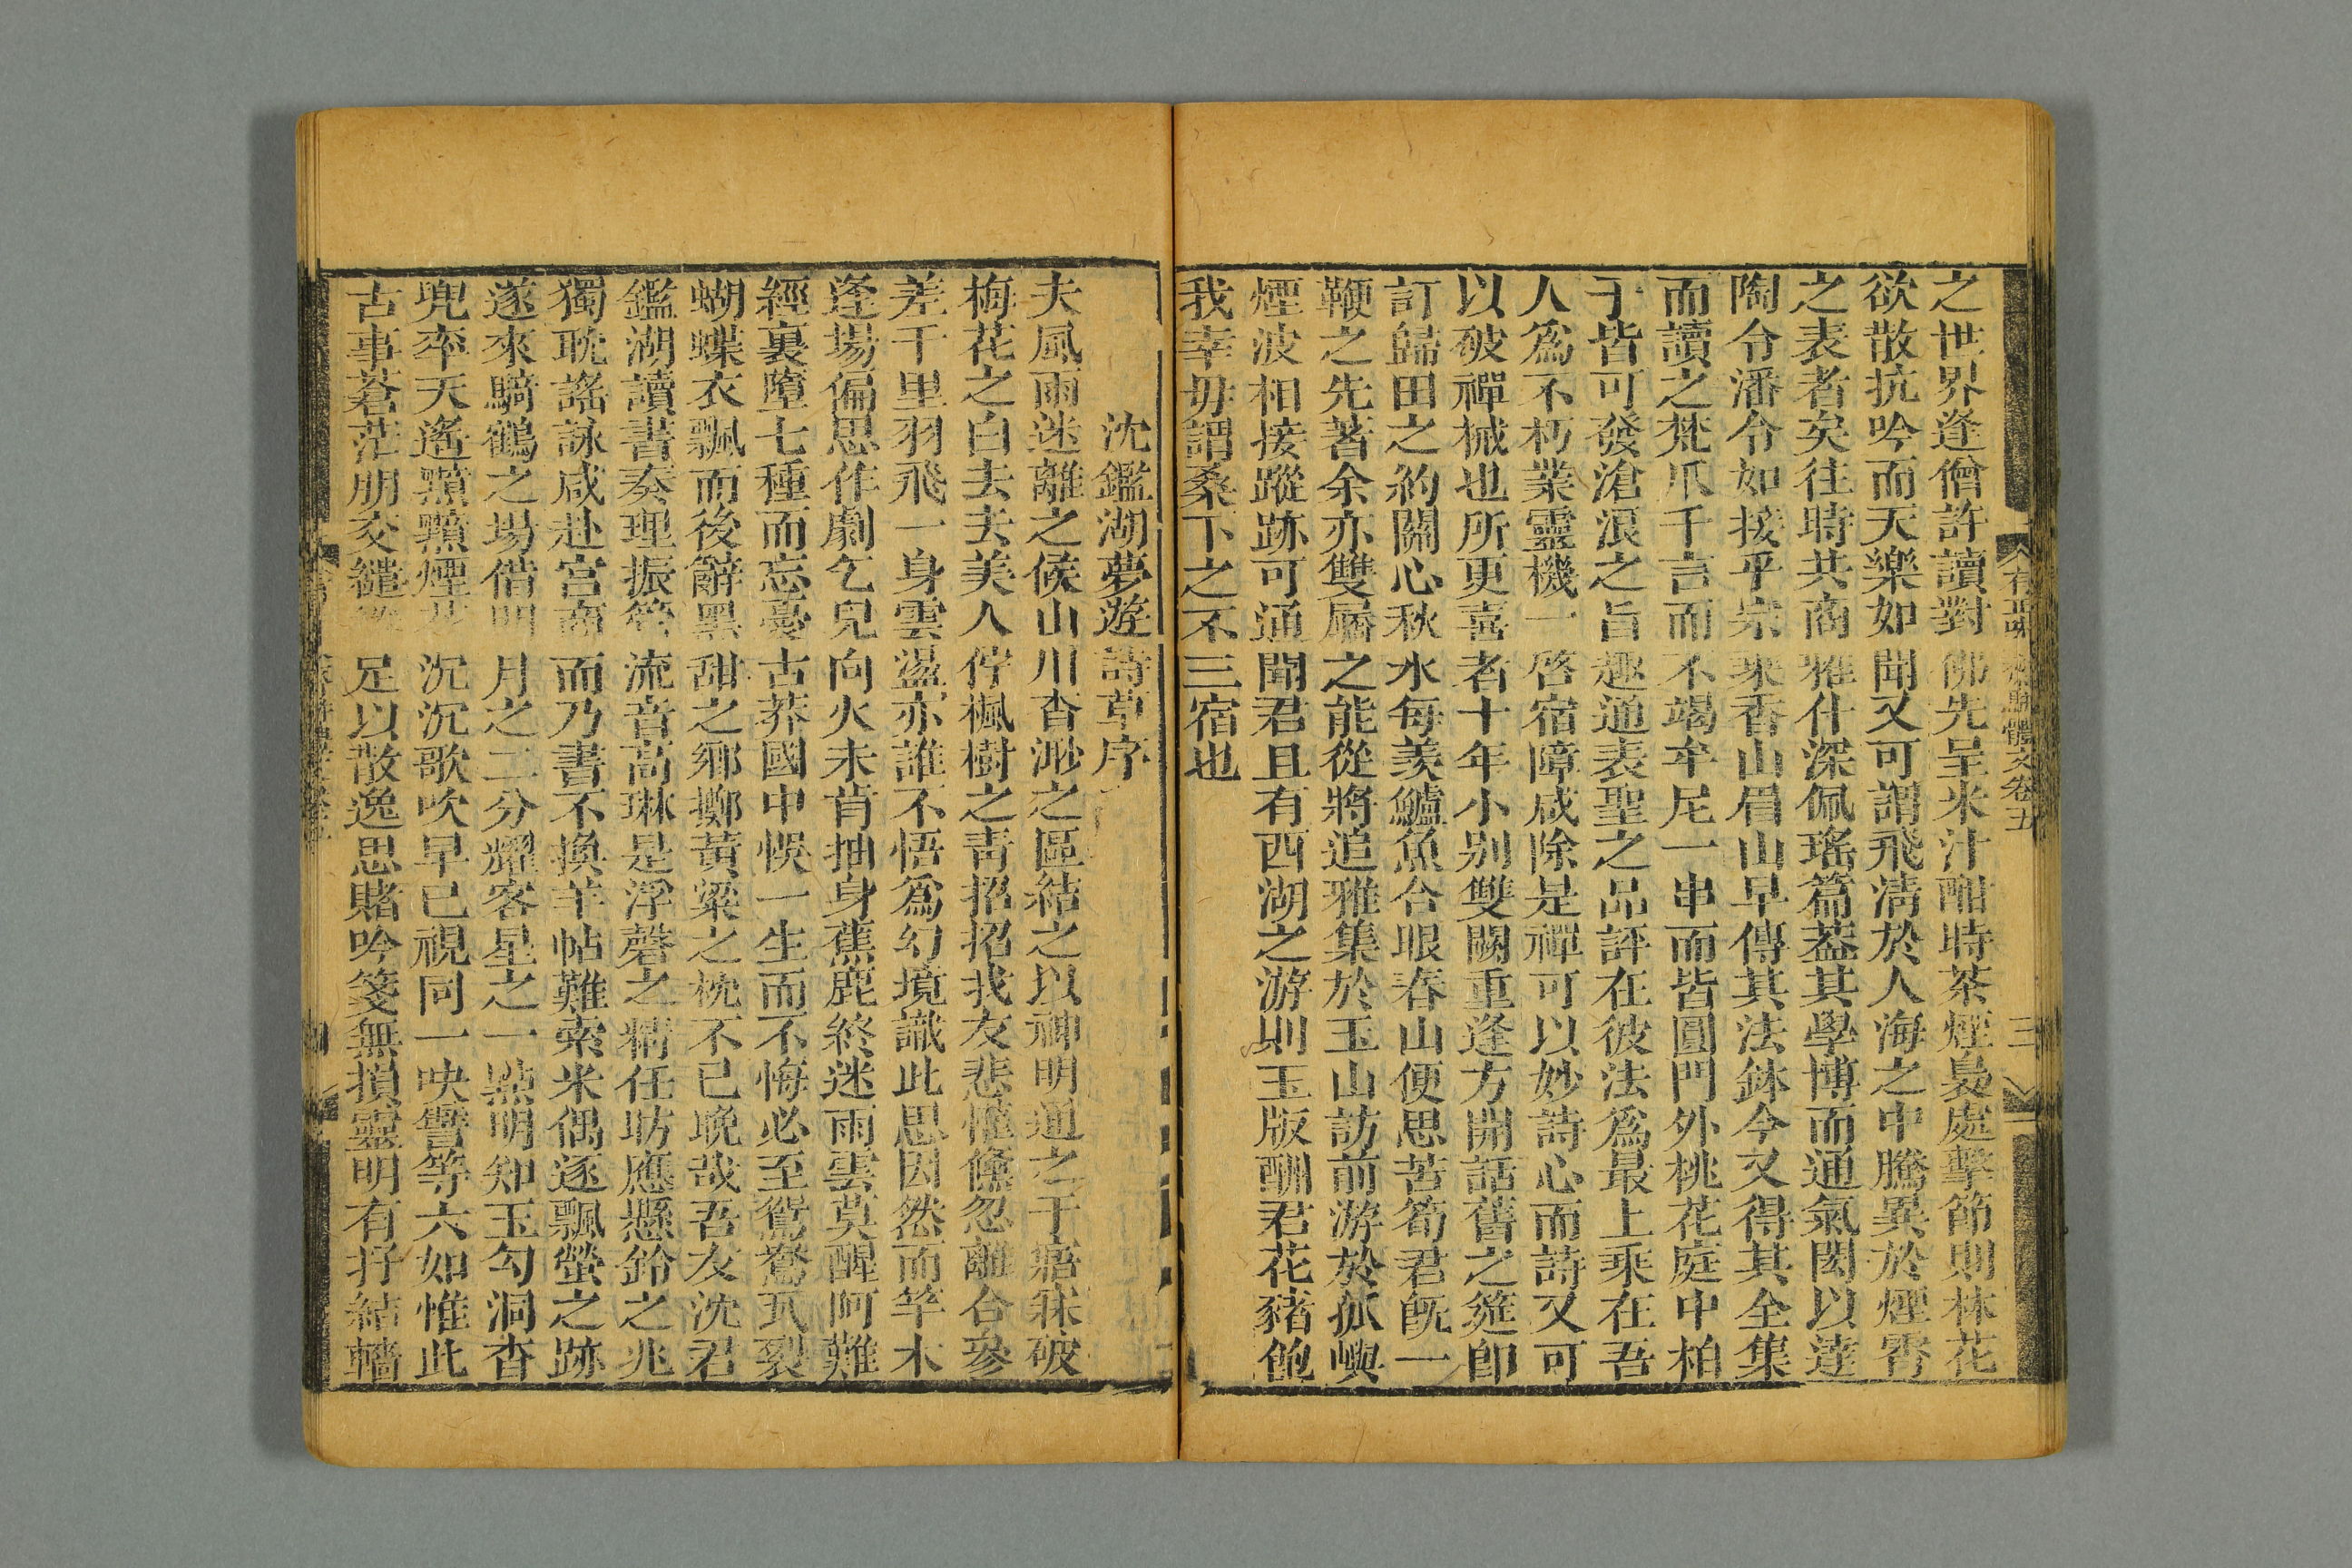 之世界逢僧許讀對佛先呈米汁酣時茶煙裊處擊節則林花
欲散抗吟而天樂如聞又可謂飛淸於人海之中騰異於煙霄
之表者矣往時共商雅什深佩瑤篇蓋其學博而通氣閎以達
陶令潘令如接乎宗來香山眉山早傳其法鉢今又得其全集
而讀之梵爪千言而不竭牟尼一串而皆圓門外桃花庭中柏
子皆可發滄浪之旨趣通表聖之品評在彼法爲最上乘在吾
人爲不朽業靈機一啓宿障咸除是禪可以妙詩心而詩又可
以破禪械也所更喜者十年小別雙闕重逢方開話舊之筵卽
訂歸田之約關心秋水每羨鱸魚合眼春山便思苦筍君旣一
鞭之先著余亦雙屩之能從將追雅集於玉山訪前游於孤嶼
煙波相接蹤跡可通聞君且有西湖之游則玉版酬君花豬飽
我幸毋謂桑下之不三宿也
沈鑑湖夢遊詩草序
夫風雨迷離之候山川杳渺之區結之以神明通之于寤寐破
梅花之白去去美人佇楓樹之靑招招我友悲懽儵忽離合參
差千里羽飛一身雲盪亦誰不悟爲幻境識此思因然而竿木
逢場偏思作劇乞兒向火未肯抽身蕉鹿終迷雨雲莫醒阿難
經裏墮七種而忘憂古莽國中悞一生而不悔必至鴛鴦瓦裂
蝴蝶衣飄而後辭黑甜之鄉擲黃粱之枕不已晚哉吾友沈君
鑑湖讀書奏理振管流音高琳是浮磬之精任昉應懸鈴之兆
獨耽謠詠咸赴宮商而乃書不換羊帖難索米偶逐飄螢之跡
遂來騎鶴之場借明月之二分耀客星之一點明知玉勾洞杳
兜率天遙顥顥煙花沉沉歌吹早已視同一吷譬等六如惟此
古事蒼茫朋交繾綣足以散逸思賭吟箋無損靈明有抒結轖